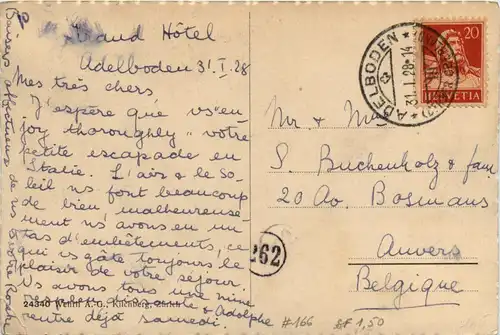 Grand Hôtel
Adelboden 31.I.28
Mes très chers
J'espère que vs "en
joy thoroughly" votre
petite escapade en
Italie. L'air & le so-
leil ns font beaucoup
de bien malheureuse-
ment ns avons eu un
tas d'embêtements, ce
qui vs gâte toujours le
plaisir de votre séjour.
Vs avons tous une mine
& Adolphe
rentre déjà samedi.
Baisers affectueux de ns
24340 Wehrli A.-G., Kilchberg, Zürich
262
ADELBODEN
31.I.28-14
20
HELVETIA
Mr & Mme
S. Buchenholz & fam
20 Av. Bosmans
Anvers
Belgique
#166
BF 1,50